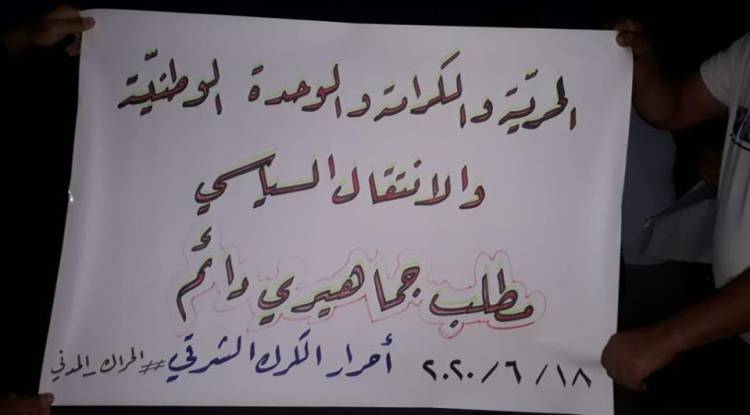 الحريّة والكرامة والوحدة الوطنيّة
والانتقال السياسي
مطلب جماهيري دائم
٢٠٢٠/٦/١٨ أحرار الكرك الشرقي #الحراك_المدني